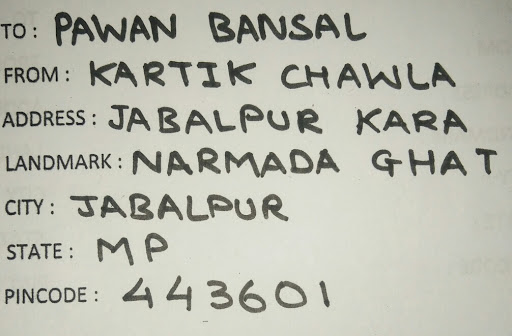 TO: PAWAN BANSAL
FROM: KARTIK CHAWLA
ADDRESS: JABALPUR KARA
LANDMARK: NARMADA GHAT
CITY: JABALPUR
STATE: MP
PINCODE: 443601